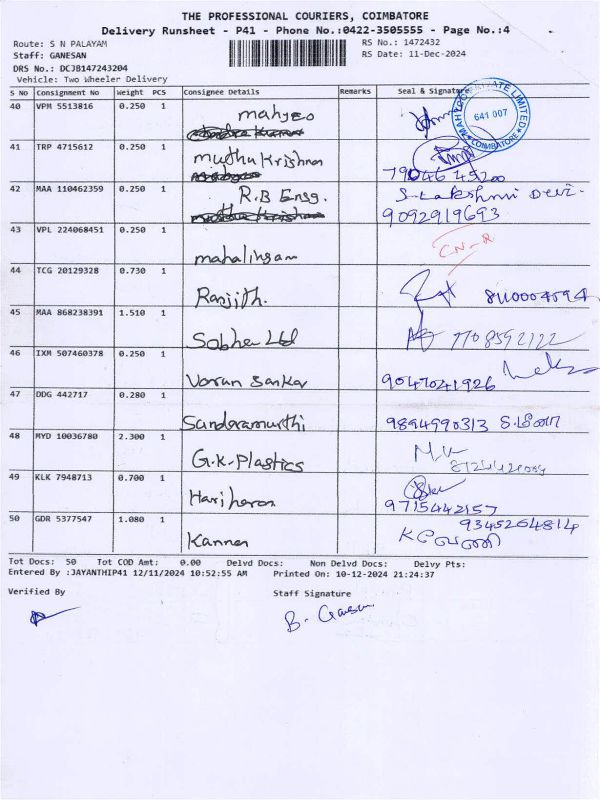 THE PROFESSIONAL COURIERS, COIMBATORE
Delivery Runsheet - P41 - Phone No.:0422-3505555 - Page No.:4
Route: S N PALAYAM
RS No.: 1472432
Staff: GANESAN
RS Date: 11-Dec-2024
DRS No.: DCJB147243204
Vehicle: Two Wheeler Delivery
S No Consignment No Weight PCS Consignee Details Remarks Seal & Signature
40 VPM 5513816 0.250 1
641 007
COIMBATORE
41 TRP 4715612 0.250 1 muthu Krishnan
42 MAA 110462359 0.250 1 R.B Engg. S. Lakshmi Devi.
9092919693
43 VPL 224068451 0.250 1 mahalingam
44 TCG 20129328 0.730 1 Ranjith.
45 MAA 868238391 1.510 1 Sobha Ltd 7708592122
46 IXM 507460378 0.250 1 9047041926
47 DDG 442717 0.280 1 Sundaramurthi 9894990313
48 MYD 10036780 2.300 1 G.K-Plastics
49 KLK 7948713 0.700 1 Hariharan 9715442157
50 GDR 5377547 1.080 1 Kannan 9345264814
Tot Docs: 50 Tot COD Amt: 0.00 Delvd Docs: Non Delvd Docs: Delvy Pts:
Entered By :JAYANTHIP41 12/11/2024 10:52:55 AM Printed On: 10-12-2024 21:24:37
Verified By Staff Signature